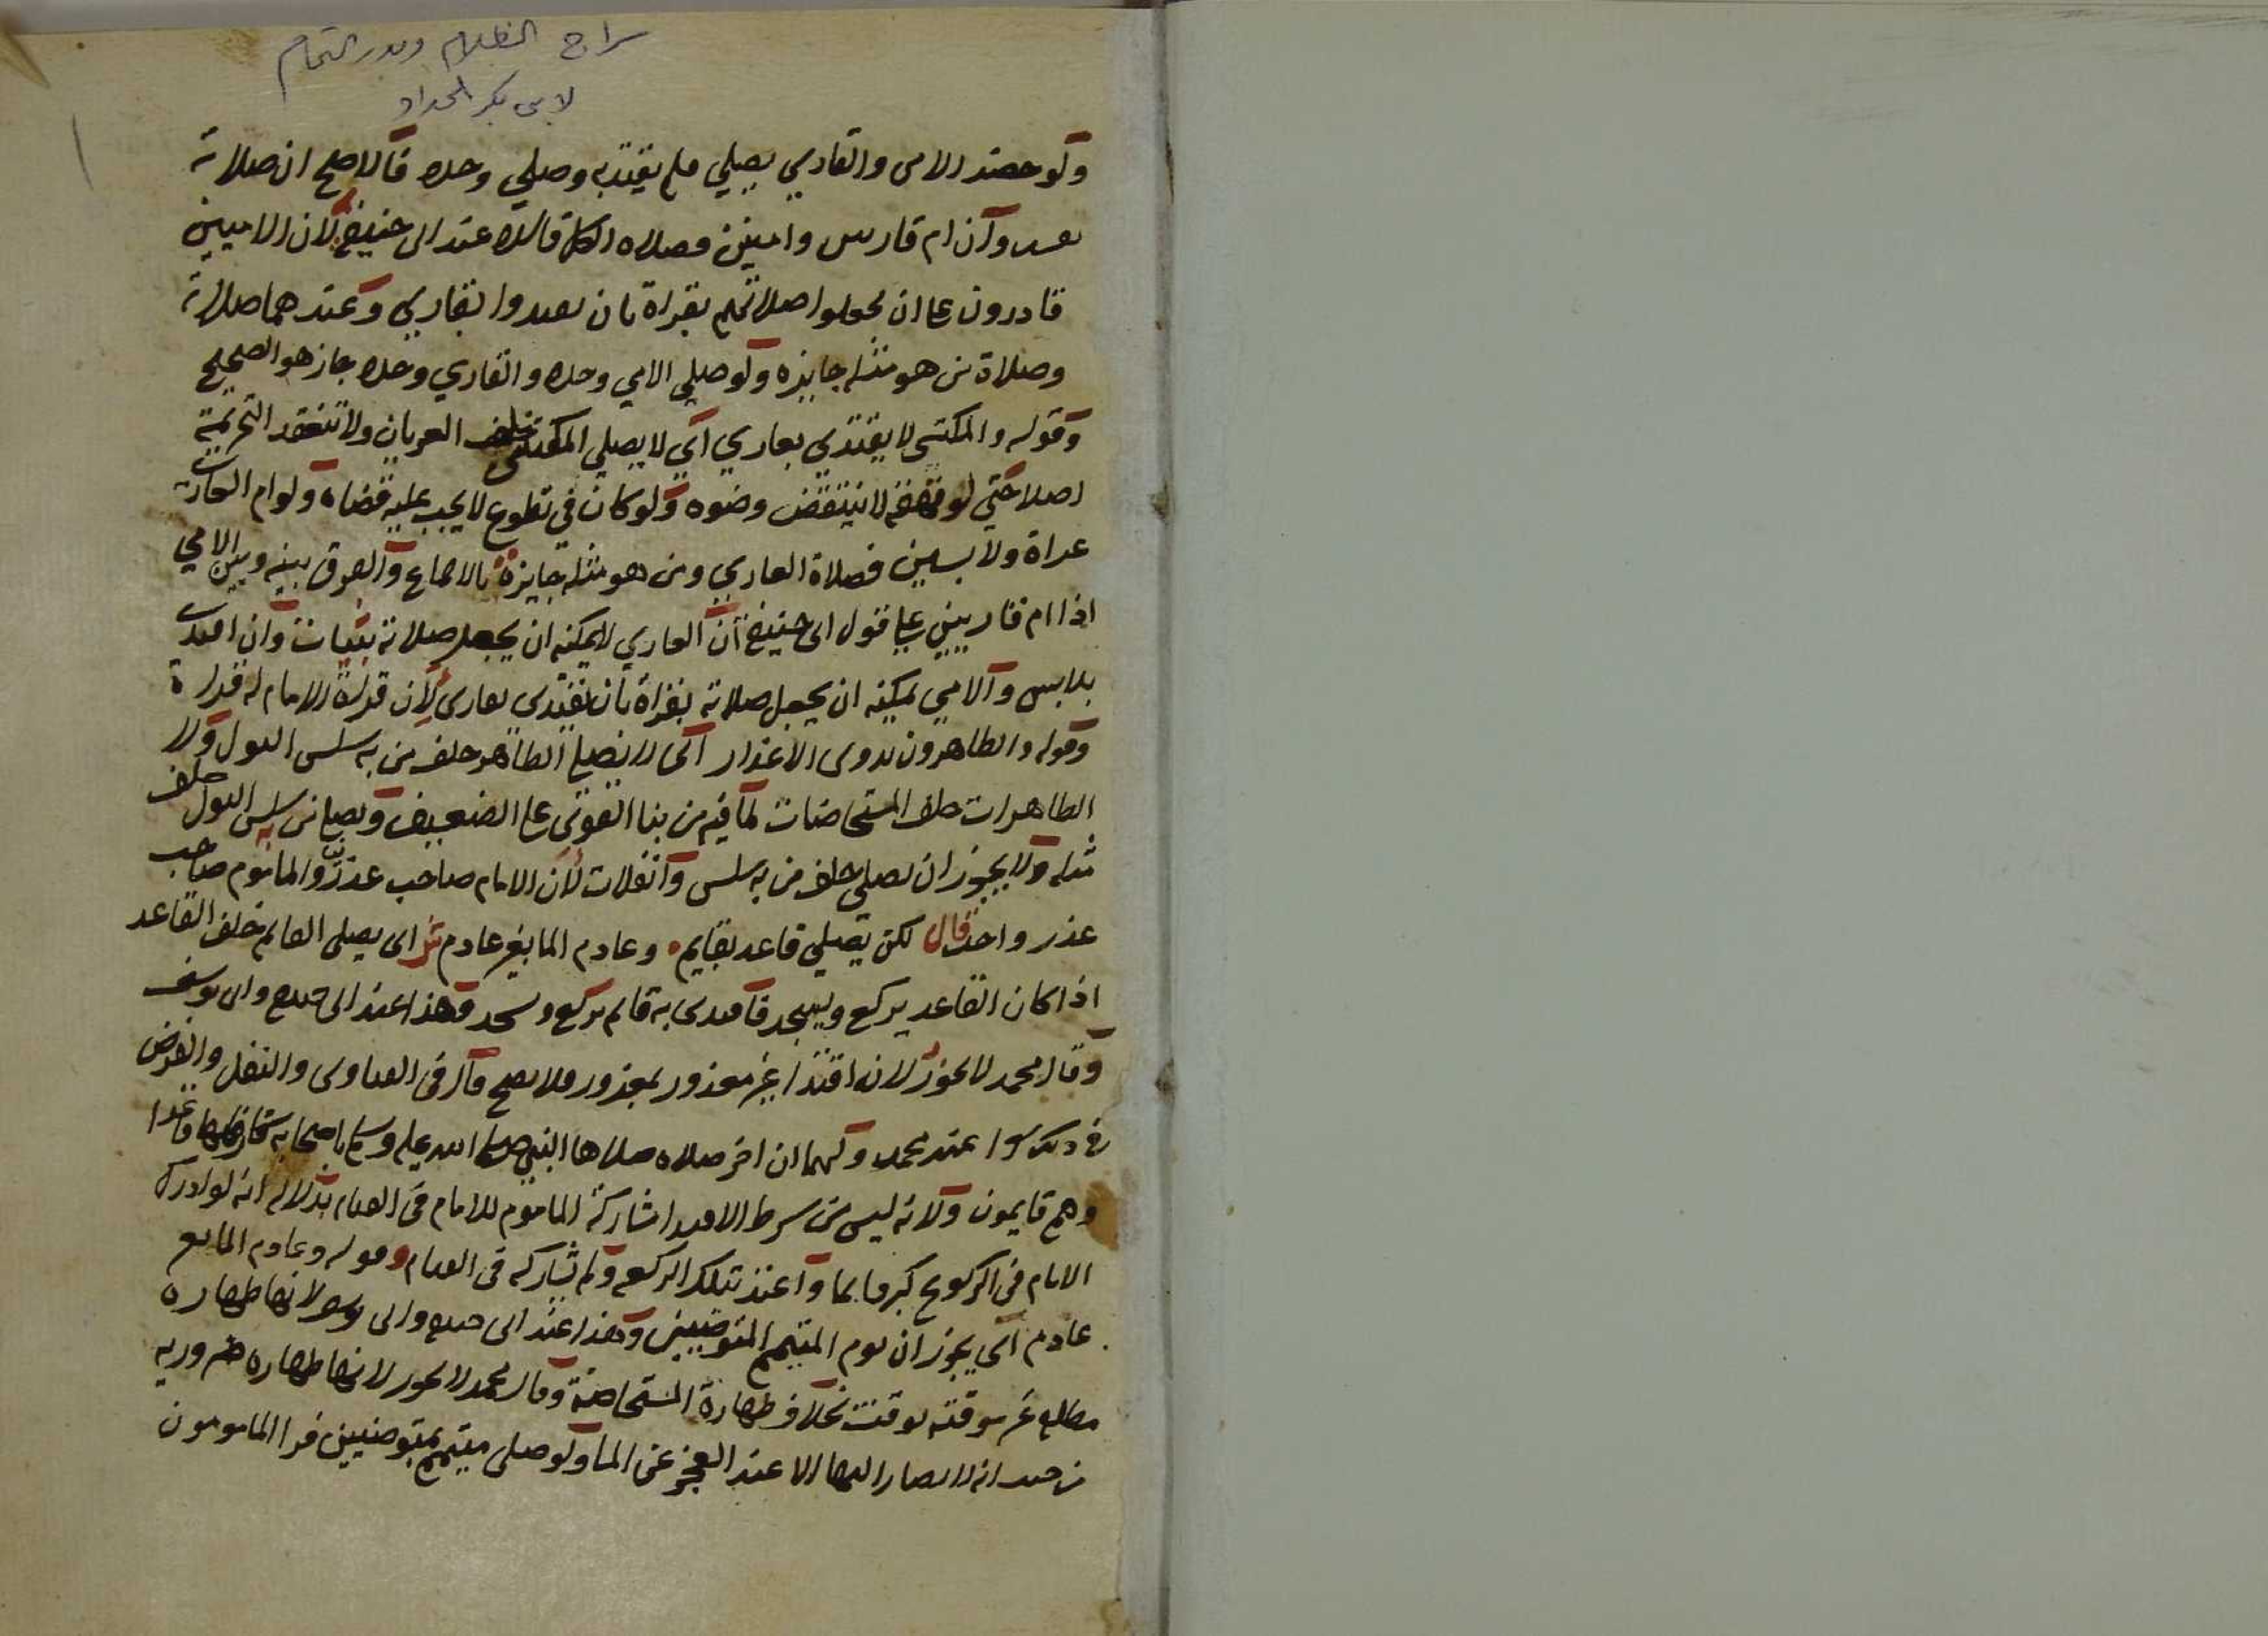 سراج الظلام وبدر التمام
لابي بكر الحداد
ولو حضر الامي والقاري يصلي فلم يقتد به وصلي وحده فالاصح ان صلاته
تفسد وان ام قاريين واميين فصلاة الكل فاسدة عند ابي حنيفة لان الاميين
قادرون على ان يجعلوا صلاتهم بقراة بان يقتدوا بقاري وعندهما صلاته
وصلاة من هو مثله جايزه ولو صلي الامي وحده والقاري وحده جاز هو الصحيح
وقوله والمكتسي لا يقتدي بعاري اي لا يصلي المكتسي خلف العريان ولا تنعقد التحريمة
اصلا حتي لو قهقه لا ينتقض وضوه ولو كان في تطوع لا يجب عليه قضاه ولو ام العاري
عراة ولابسين فصلاة العاري ومن هو مثله جايزة بالاجماع والفرق بينه وبين الامي
اذا ام قاريين على قول ابي حنيفة ان العاري لا يمكنه ان يجعل صلاته بثياب وان اقتدى
بلابس والامي يمكنه ان يجعل صلاته بقراة بان يقتدي بقاري لان قراة الامام له قراة
وقوله والطاهرون بذوي الاعذار اي لا يصلي الطاهر خلف من به سلس البول ولا
الطاهرات خلف المستحاضات لما فيه من بنا القوي على الضعيف ويصلي من به سلس البول خلف
مثله ولا يجوز ان يصلي خلف من به سلس وانفلات لان الامام صاحب عذرين والماموم صاحب
عذر واحد قال لكن يصلي قاعد بقايم وعادم الما بغير عادم ش اي يصلي القايم خلف القاعد
اذا كان القاعد يركع ويسجد فاقتدى به قايم يركع ويسجد وهذا عند ابي حنيفة وابي يوسف
وقال محمد لا يجوز لانه اقتدا غير معذور بمعذور فلا يصح قال في الفتاوى والنفل والفرض
في ذلك سوا عند محمد ولهما ان اخر صلاه صلاها النبي صلى الله عليه وسلم باصحابه قاعدا
وهم قايمون ولانه ليس من شرط الاقتدا مشاركة الماموم للامام في القيام بدلالة انه لو ادرك
الامام في الركوع كبر قايما واعتد بتلك الركعه ولم يشاركه في القيام وقوله وعادم الما مع
عادم اي يجوز ان يوم المتيمم المتوضيين وهذا عند ابي حنيفة وابي يوسف لانها طهاره
مطلقه غير موقته بوقت بخلاف طهارة المستحاضة وقال محمد لا يجوز لانها طهاره ضروريه
من حيث انه لا يصار اليها الا عند العجز عن الما ولو صلى متيمم بمتوضيين فرا المامومون